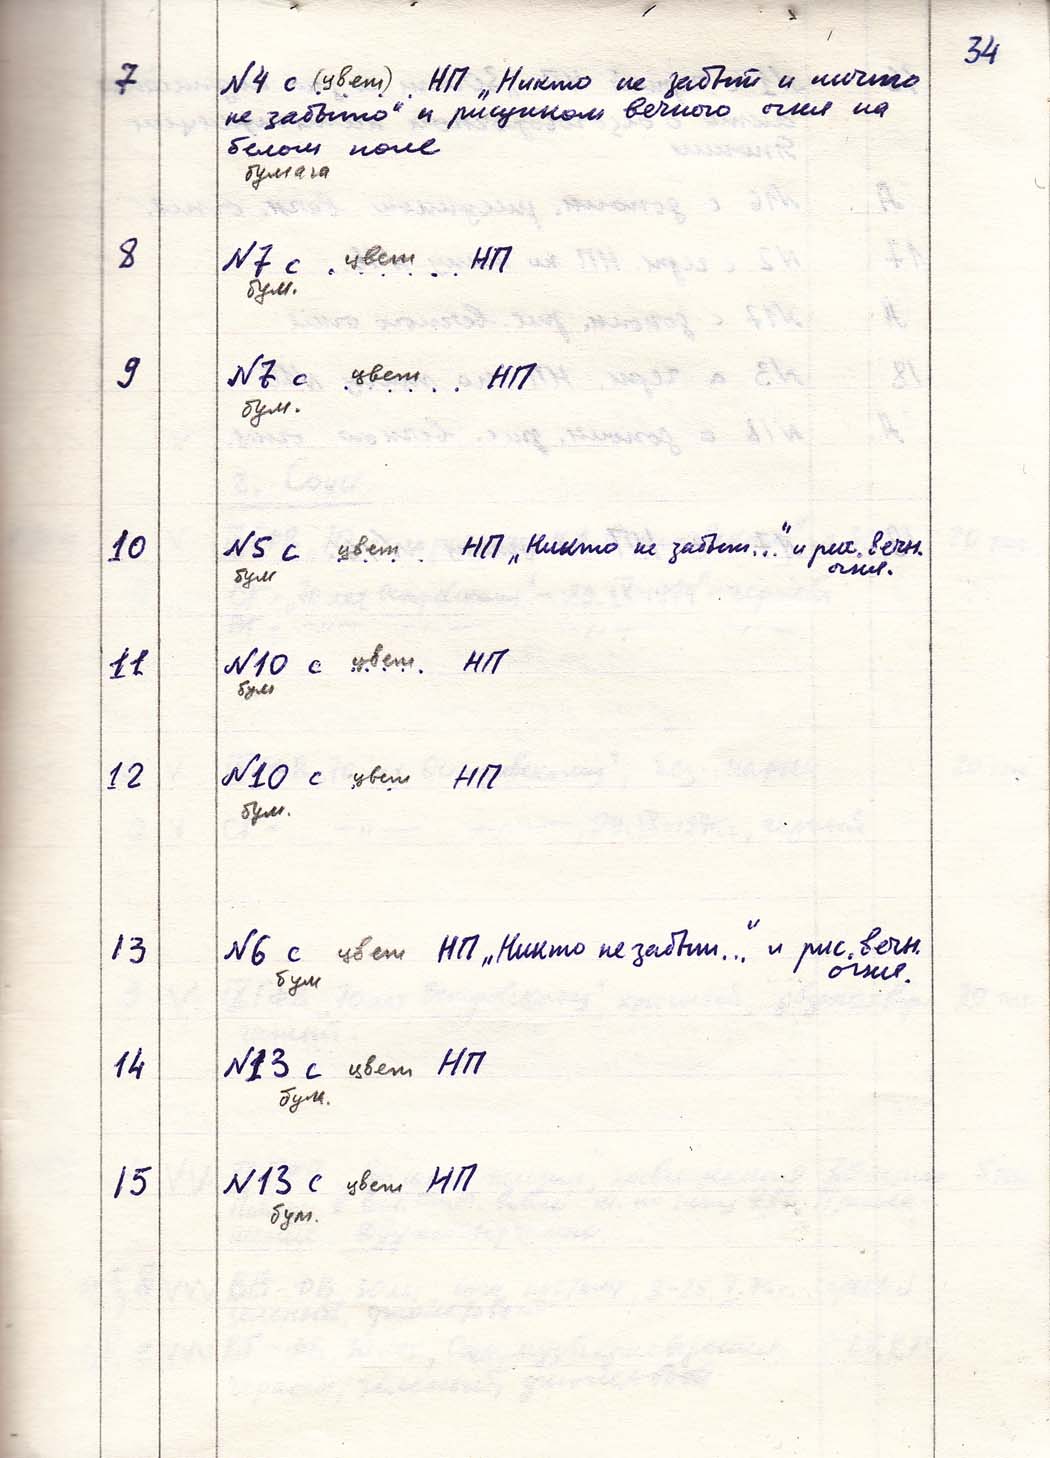 34
7 N4 с (цвет) . НП „Никто не забыт и ничто
не забыто" и рисунком вечного огня на
белом поле
бумага
8 N7 с . цвет . . НП
бум.
9 N7 с . цвет . . НП
бум.
10 N5 с цвет . НП „Никто не забыт..." и рис. вечн.
бум огня.
11 N10 с цвет . НП
бум
12 N10 с цвет НП
бум.
13 N6 с цвет НП „Никто не забыт..." и рис. вечн.
бум огня.
14 N13 с цвет НП
бум.
15 N13 с цвет НП
бум.